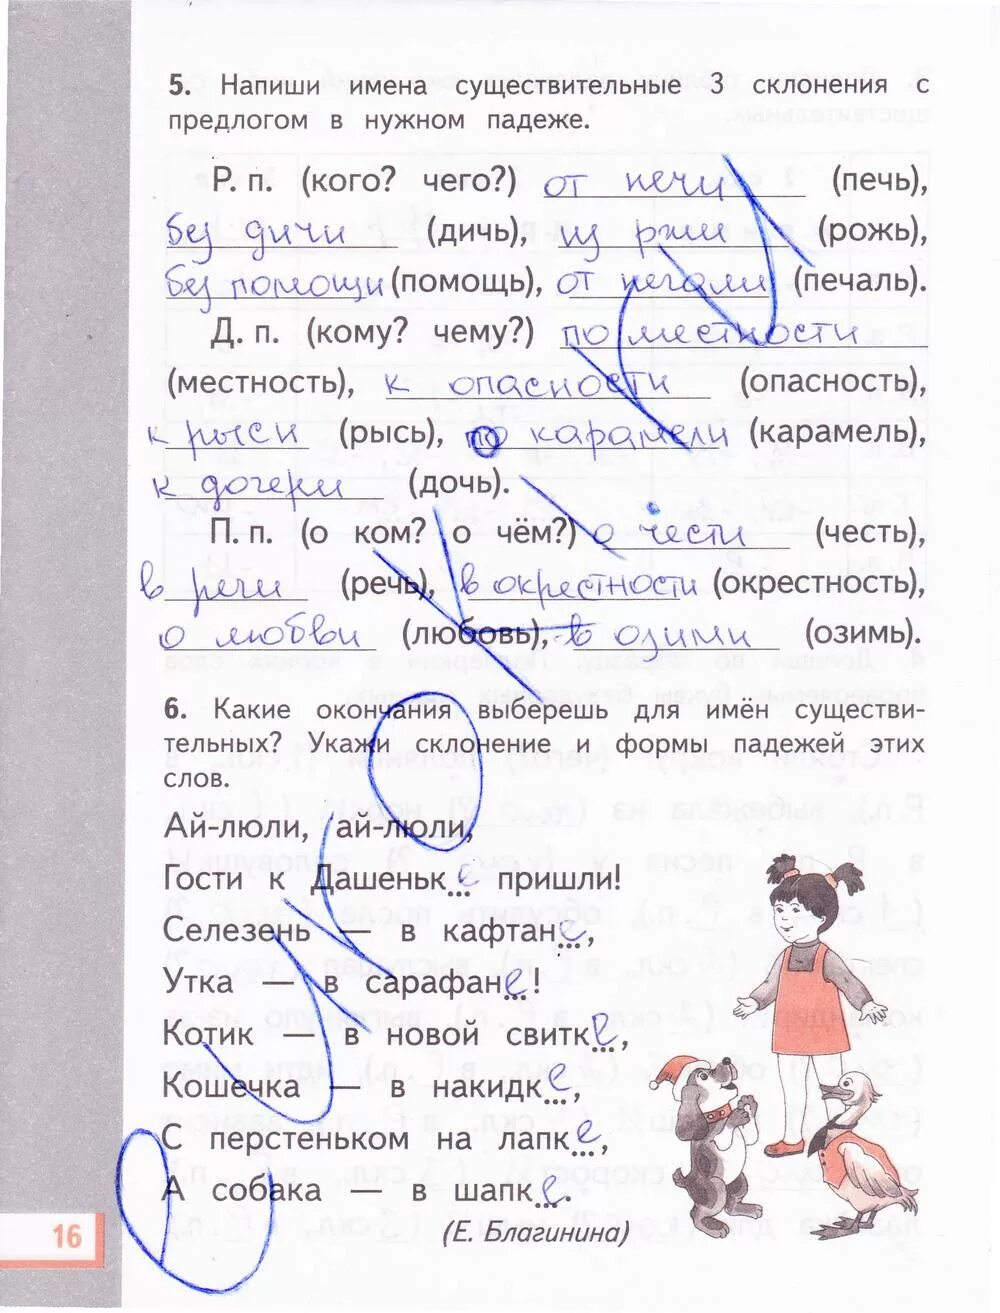 5. Напиши имена существительные 3 склонения с
предлогом в нужном падеже.
Р. п. (кого? чего?) от печи (печь),
без дичи (дичь), из ржи (рожь),
без помощи (помощь), от печали (печаль).
Д. п. (кому? чему?) по местности
(местность), к опасности (опасность),
к рыси (рысь), по карамели (карамель),
к дочери (дочь).
П. п. (о ком? о чём?) о чести (честь),
в речи (речь), в окрестности (окрестность),
о любви (любовь), в озими (озимь).
6. Какие окончания выберешь для имён существи-
тельных? Укажи склонение и формы падежей этих
слов.
Ай-люли, ай-люли,
Гости к Дашеньке пришли!
Селезень — в кафтане,
Утка — в сарафане!
Котик — в новой свитке,
Кошечка — в накидке,
С перстеньком на лапке
А собака — в шапке.
(Е. Благинина)
16